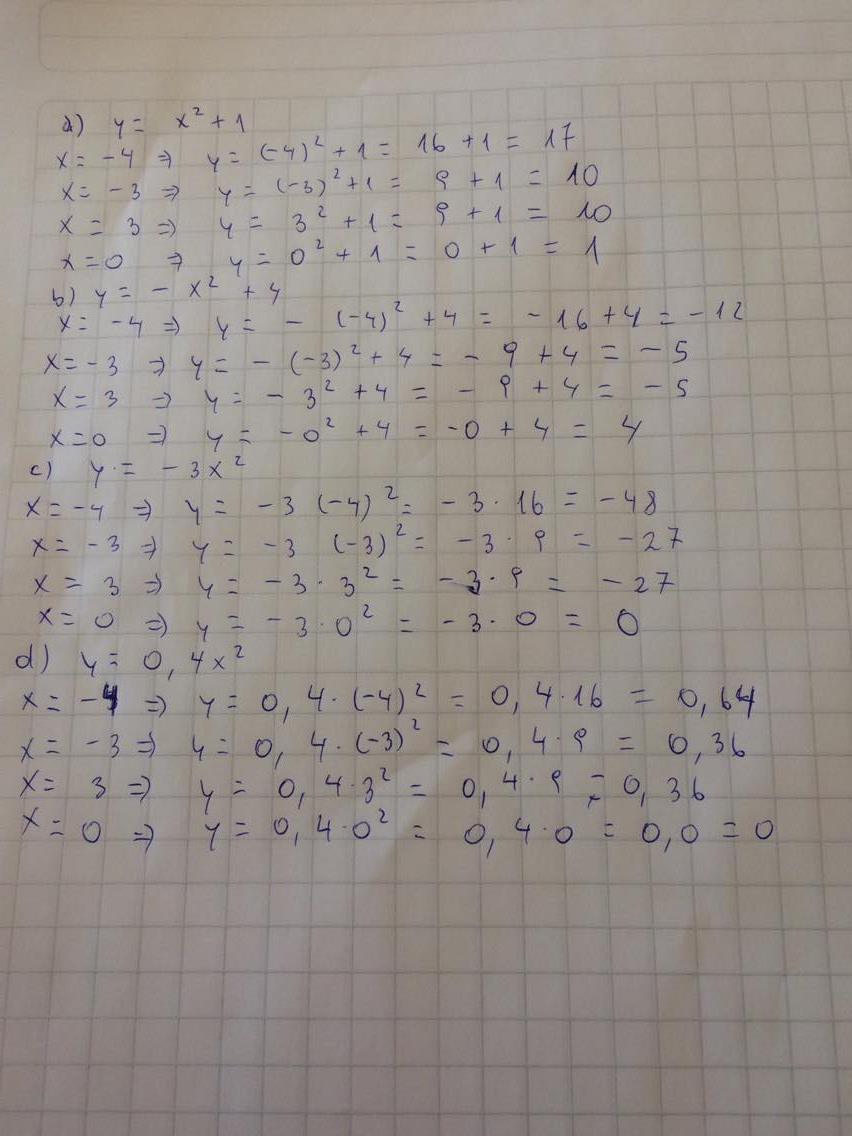 a) y = x² + 1
x = -4 ⇒ y = (-4)² + 1 = 16 + 1 = 17
x = -3 ⇒ y = (-3)² + 1 = 9 + 1 = 10
x = 3 ⇒ y = 3² + 1 = 9 + 1 = 10
x = 0 ⇒ y = 0² + 1 = 0 + 1 = 1
b) y = - x² + 4
x = -4 ⇒ y = - (-4)² + 4 = -16 + 4 = -12
x = -3 ⇒ y = - (-3)² + 4 = - 9 + 4 = -5
x = 3 ⇒ y = - 3² + 4 = - 9 + 4 = -5
x = 0 ⇒ y = -0² + 4 = -0 + 4 = 4
c) y = - 3x²
x = -4 ⇒ y = -3 (-4)² = -3 · 16 = -48
x = -3 ⇒ y = -3 (-3)² = -3 · 9 = -27
x = 3 ⇒ y = -3 · 3² = -3 · 9 = -27
x = 0 ⇒ y = -3 · 0² = -3 · 0 = 0
d) y = 0,4x²
x = -4 ⇒ y = 0,4 · (-4)² = 0,4 · 16 = 0,64
x = -3 ⇒ y = 0,4 · (-3)² = 0,4 · 9 = 0,36
x = 3 ⇒ y = 0,4 · 3² = 0,4 · 9 = 0,36
x = 0 ⇒ y = 0,4 · 0² = 0,4 · 0 = 0,0 = 0